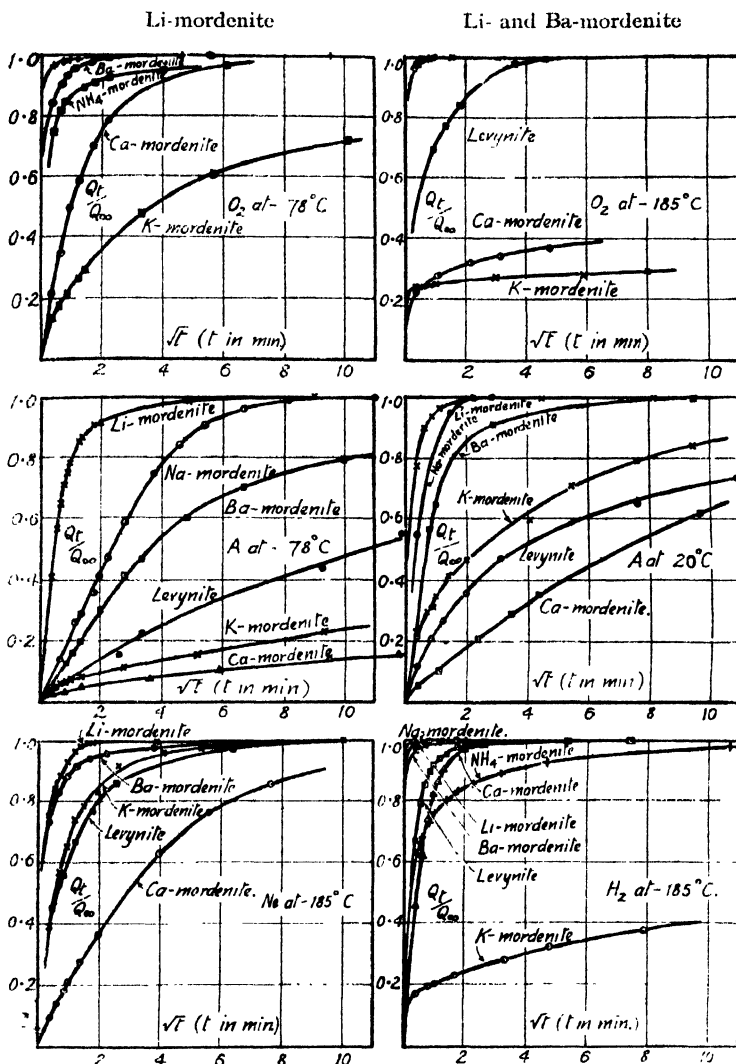 Li-mordenite
Li- and Ba-mordenite
1.0
0.8
0.6
0.4
0.2
Ba-mordenite
NH4-mordenite
Ca-mordenite
Qt/Q∞
O2 at -78°C.
K-mordenite
√t (t in min)
2 4 6 8 10
1.0
0.8
0.6
0.4
0.2
Levynite
Qt/Q∞
O2 at -185°C
Ca-mordenite
K-mordenite
√t (t in min)
2 4 6 8 10
1.0
0.8
0.6
0.4
0.2
Li-mordenite
Na-mordenite
Ba-mordenite
Qt/Q∞
A at -78°C
Levynite
K-mordenite
Ca-mordenite
√t (t in min)
2 4 6 8 10
1.0
0.8
0.6
0.4
0.2
Li-mordenite
Na-mordenite
Ba-mordenite
K-mordenite
Qt/Q∞
Levynite
A at 20°C
Ca-mordenite.
√t (t in min)
2 4 6 8 10
Li-mordenite
1.0
0.8
0.6
0.4
0.2
Ba-mordenite
K-mordenite
Levynite
Qt/Q∞
Ca-mordenite.
Ne at -185°C
√t (t in min)
2 4 6 8 10
Na-mordenite.
1.0
0.8
0.6
0.4
0.2
NH4-mordenite
Ca-mordenite
Li-mordenite
Ba-mordenite
Levynite
Qt/Q∞
H2 at -185°C.
K-mordenite
√t (t in min.)
2 4 6 8 10